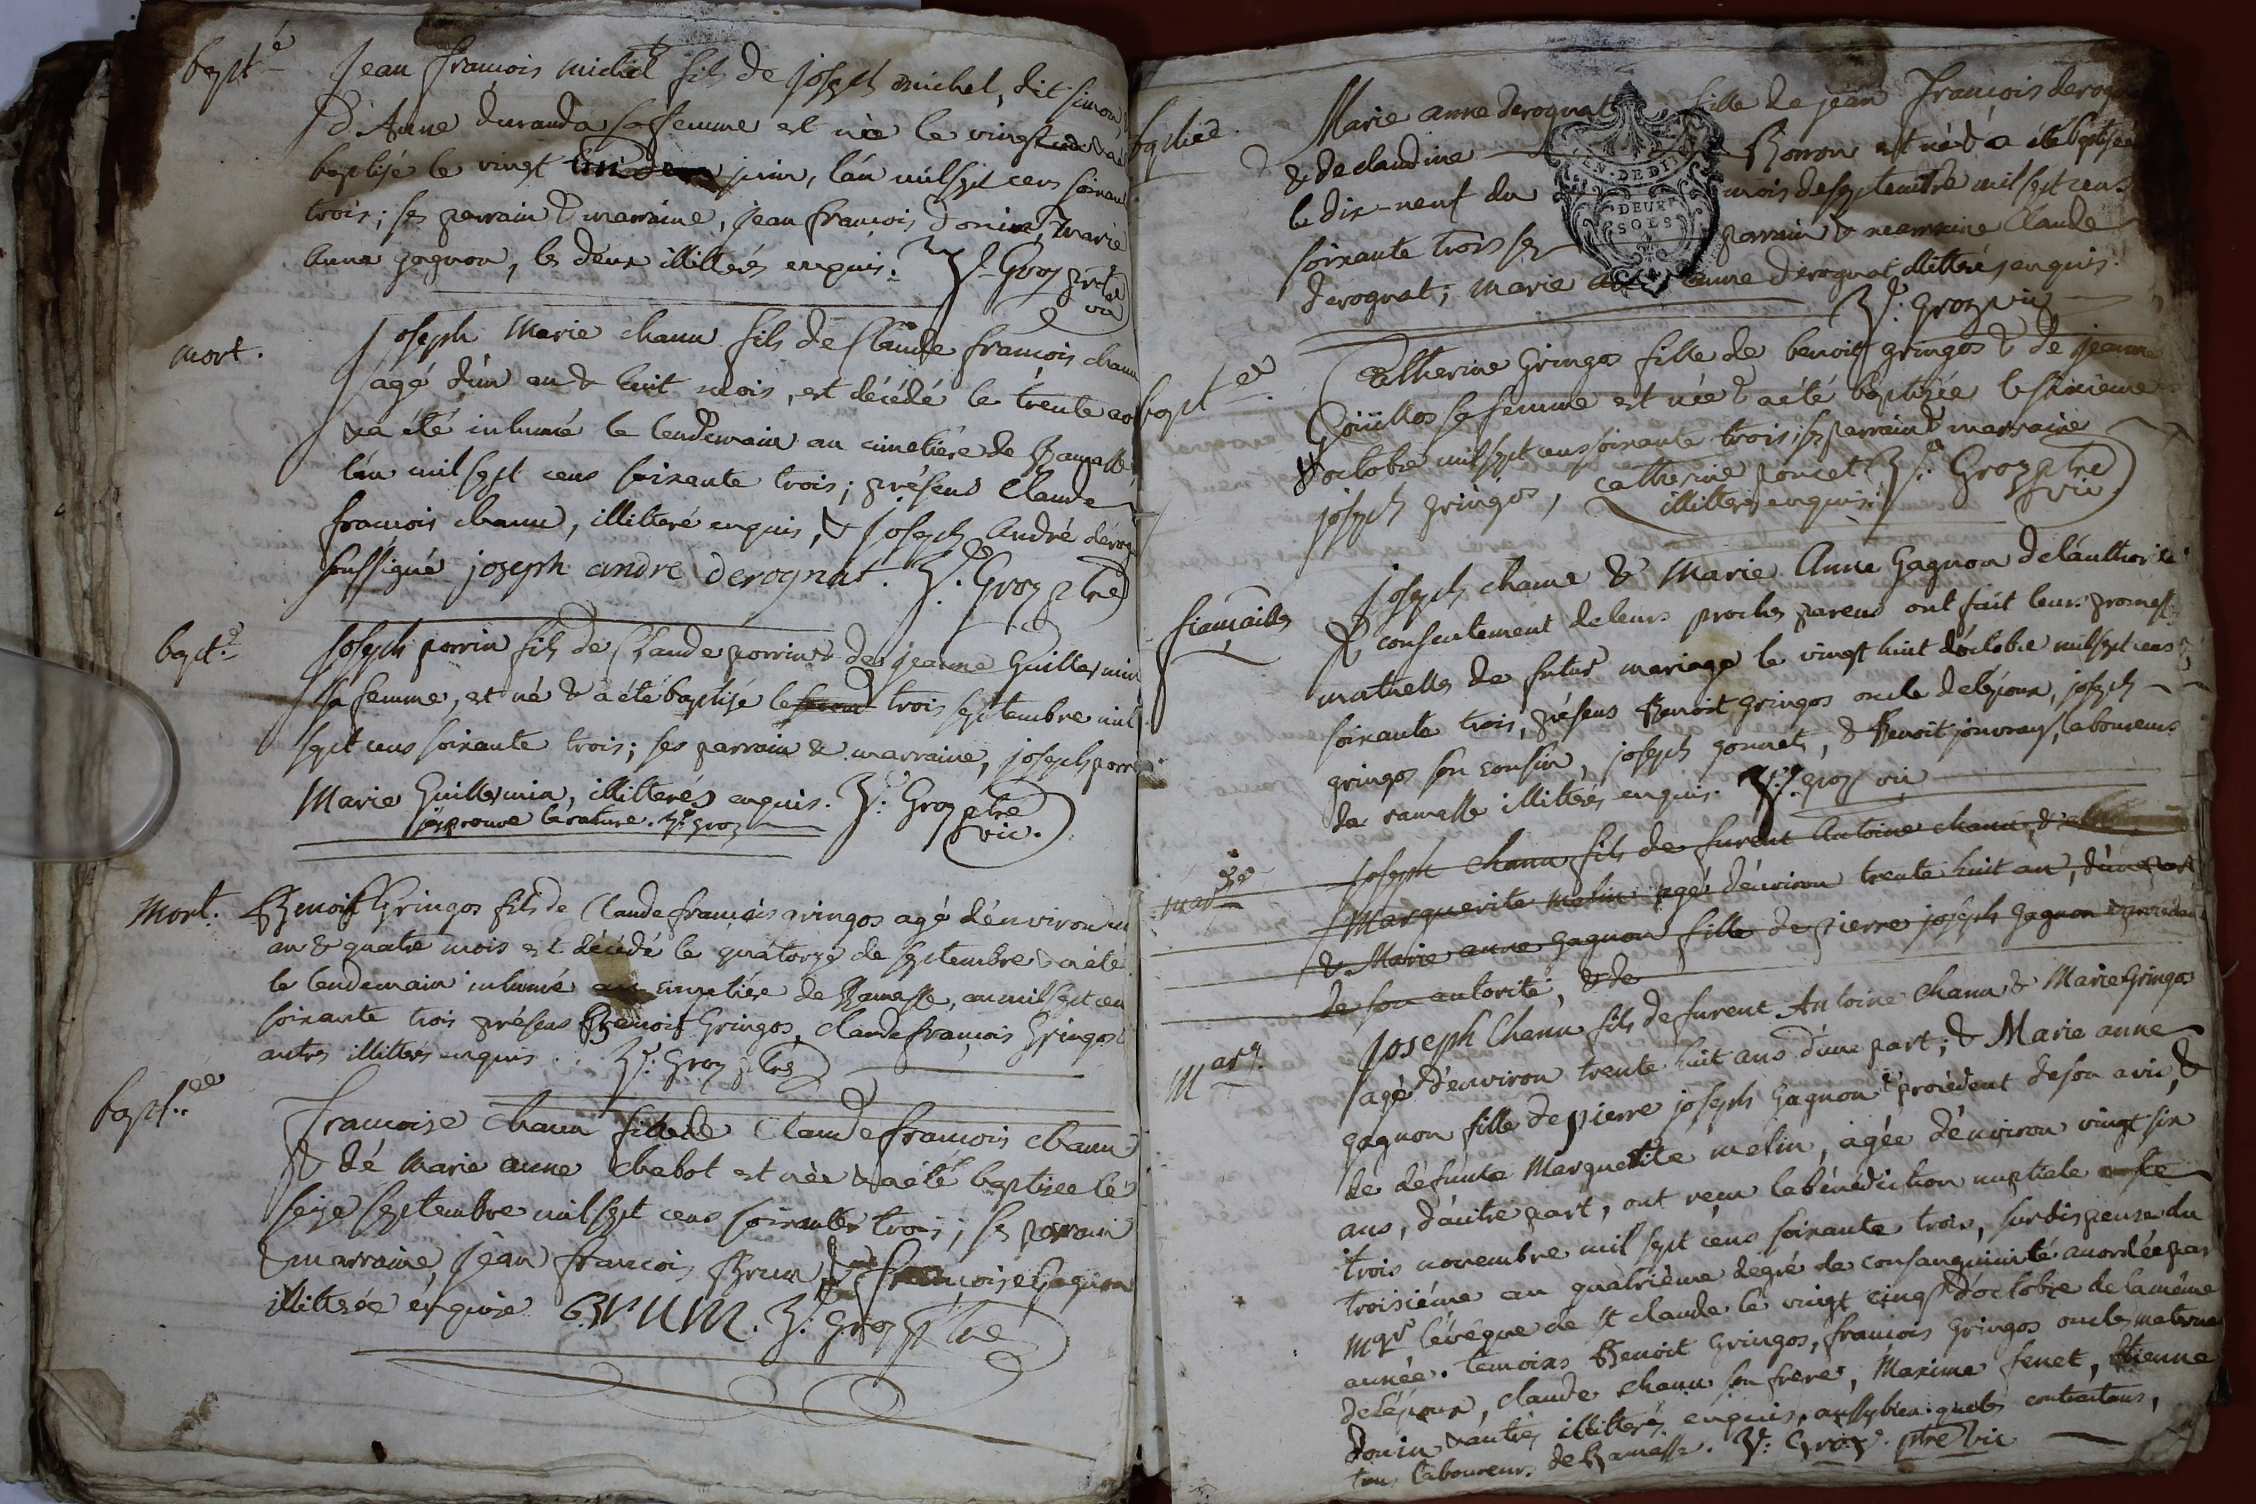 bapt.e
Jean francois michel fils de joseph michel, dit simon
& d'Anne duranda sa femme est née le vingt
baptisé le vingt juin, l'an mil sept cens soixan
trois; ses parrain & marraine, jean francois donin, & marie
Anne gagnon, les deux illitérés enquis. J.h Groz ptre
vic
mort.
Joseph Marie chanu fils de Claude francois chanu
agé d'un an & huit mois, est décédé le trente aou
& a été inhumé le lendemain au cimetière de Ramasse
l'an mil sept cens soixante trois; présens Claude
francois chanu, illitteré enquis, & joseph André dérog
soussigné joseph andre derognat. J.h Groz ptre
bapt.e
Joseph perrin fils de Claude perrin & de jeanne Guillermin
sa femme, est né & a été baptisé le second trois septembre mil
sept cens soixante trois; ses parrain & marraine, joseph perr
Marie Guillermin, illitterés enquis. J.h Groz ptre
vic.
japrouve la rature. J.h groz
Mort.
Benoit Gringos fils de Claude francois gringos agé d'environ un
an & quatre mois est décédé le quatorze de septembre & a été
le lendemain inhumé au cimetière de Ramasse, an mil sept cen
soixante trois présens Benoit Gringos, Claude francois Gringos &
autres illitterés enquis. J.h Groz ptre
bapt.ée
Francoise Chanu fille de Claude francois chanu
& dé Marie anne chabot est née & a été baptisée lé
seize septembre mil sept cens soixante trois; ses parrain
& marraine, jean francois Brun & francoise Gagnon
illitterée enquise Brun. J.h Groz ptre
baptiée.
Marie anne derognat fille de jean francois derogn
& de claudine Borron est née & a été baptisée
le dix-neuf du mois de septembre mil sept cens
soixante trois ses parrain & marraine Claude
derognat; marie anne derognat illitterés enquis.
J.h groz vic
GEN. DE DI
DEUX
SOLS
bapt.ée
Catherine Gringos fille de benoit gringos & de jeanne
Goiiillos sa femme est née & a été baptisée le sixieme
d'octobre mil sept cens soixante trois; ses parrain & marraine
joseph gringos, catherine poncet J.h Groz ptre
illitterés enquis. vic.
fiancailles
joseph chanu & Marie Anne Gagnon de l'authorité
& consentement de leurs proches parens ont fait leurs promesses
mutuelles de futur mariage le vingt huit d'octobre mil sept cens
soixante trois, présens Benoit gringos oncle de l'époux, joseph
gringos son cousin, joseph gonnet, & Benoit jouvray, laboureurs
de ramasse illitterés enquis. J.h groz vic
mar.ge
joseph Chanu fils de furent Antoine chanu, &
Marguerite melin agé d'environ trente huit an, d'une part
& Marie anne gagnon fille de pierre joseph gagnon & procedant
de son autorité, & de
Mar.g
Joseph Chanu fils de furent Antoine Chanu & Marie Gringos
agé d'environ trente huit ans d'une part; & Marie anne
gagnon fille de pierre joseph Gagnon & procédent de son avis, &
de défunte Marguerite melin, agée d'environ vingt six
ans, d'autre part, ont reçu la bénédiction nuptiale le
trois novembre mil sept cens soixante trois, sur dispense du
troisiéme au quatriéme degré de consanguinité accordée par
Mgr l'évêque de St claude le vingt cinq d'octobre de la même
année. témoins Benoit Gringos, francois Gringos oncles maternel
de l'époux, claude chanu son frere, Maxime fenet, Etienne
donin & autres illitterés enquis, aussy bien que les contractans,
tous laboureurs de Ramasse. J.h Groz. ptre vic